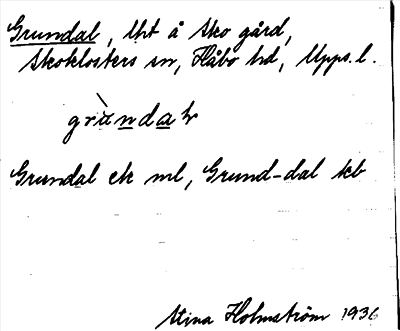 Grundal, lht å Sko gård,
Skoklosters sn, Håbo hd, Upps. l.
grùndaɫ
Grundal ek ml, Grund-dal kb
Stina Holmström 1936